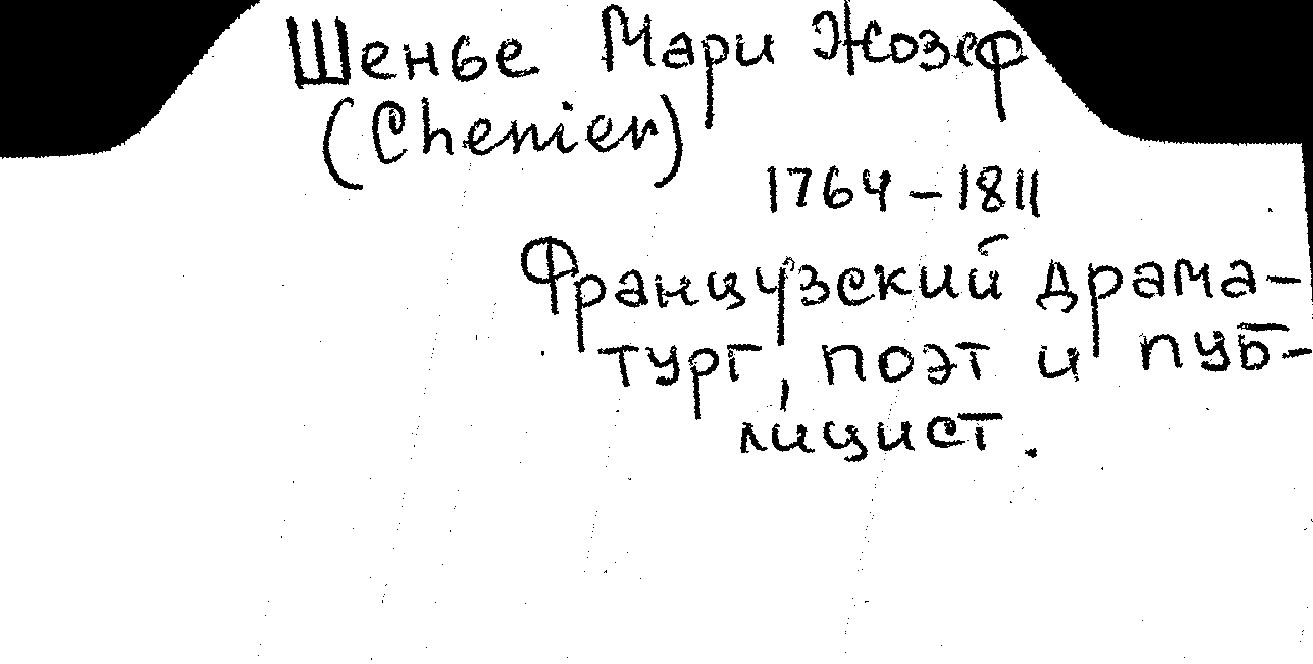 Шенье Мари Жозеф
(Chenier)
1764 – 1811
Французский драма-
тург, поэт и пуб-
лицист.